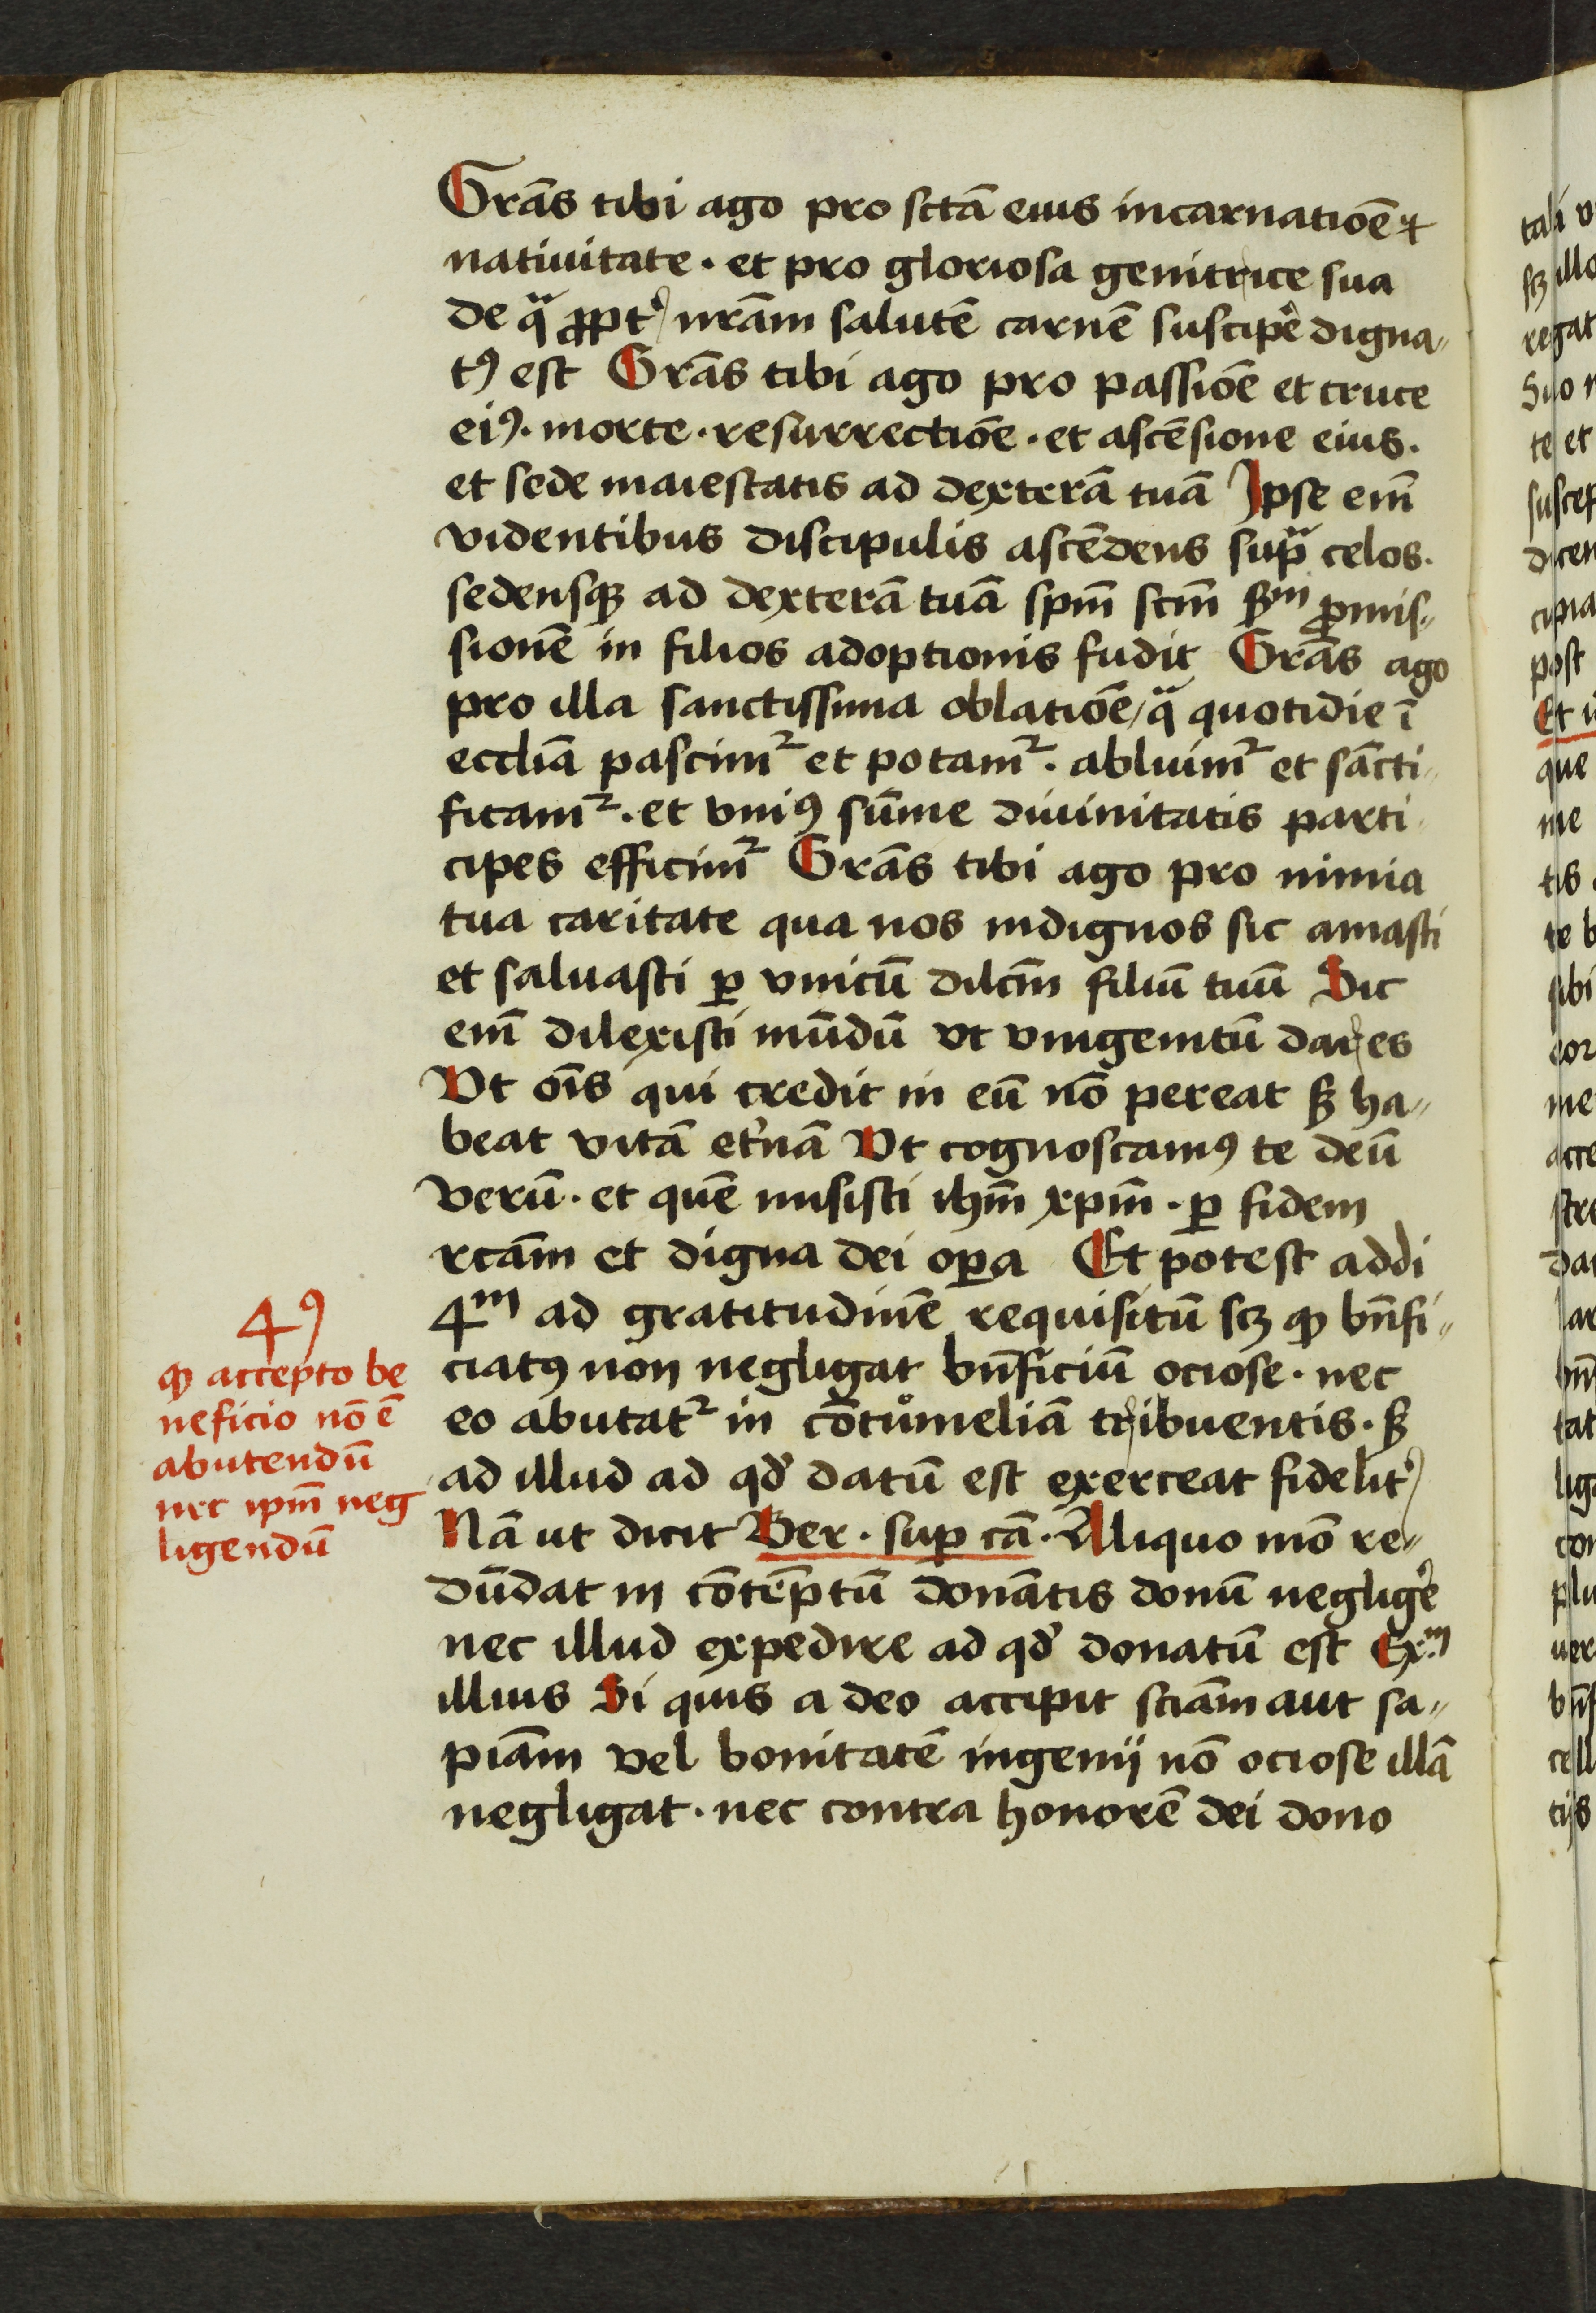 Grās tibi ago pro sctā eius incarnatiōe et
natiuitate · et pro gloriosa genitrice sua
de qͣ ꝓpt᷑ nrām salutē carnē suscip̄e digna„
tꝰ est Grās tibi ago pro passiōe et cruce
eiꝰ · morte · resurrectiōe · et ascēsione eius ·
et sede maiestatis ad dexterā tuā Ipse em̄
videntibus discipulis ascēdens supͣ celos ·
sedensqꝫ ad dexterā tuā spm̄ scm̄ ẜm ꝓmis„
sionē in filios adoptionis fudit Grās ago
pro illa sanctissima oblatiōe / qͣ quotidie ī
eccliā pascimᷣ et potamᷣ · abluimᷣ et sācti„
ficamᷣ · et vniꝰ sūme diuinitatis parti„
cipes efficimᷣ Grās tibi ago pro nimia
tua caritate qua nos indignos sic amasti
et saluasti ꝑ vnicū dilcm̄ filiū tuū Sic
em̄ dilexisti mūdū vt vnigenitū dares
Vt oīs qui credit in eū nō pereat sꝫ ha„
beat vitā et᷑nā Vt cognoscamꝰ te deū
verū · et quē misisti ihm̄ xpm̄ · ꝑ fidem
rcām et digna dei oꝑa Et potest addi
4ᵐ ad gratitudinē requisitū scꝫ ꝙ bn̄fi„
ciatꝰ non negligat bn̄ficiū ociose · nec
eo abutatᷣ in cōtumeliā tribuentis · sꝫ
ad illud ad qd̓ datū est exerceat fidelit᷑
Nā ut dicit Ber · suꝑ cā · Aliquo mō re„
dūdat in cōtēptū donātis donū neglig̓e
nec illud expedire ad qd̓ donatū est Exᵐ
illius Si quis a deo accipit sciām aut sa„
piām vel bonitatē ingenij nō ociose illā
negligat · nec contra honorē dei dono
4ꝰ
ꝙ accepto be
neficio nō ē
abutendū
nec ipm̄ neg
ligendū